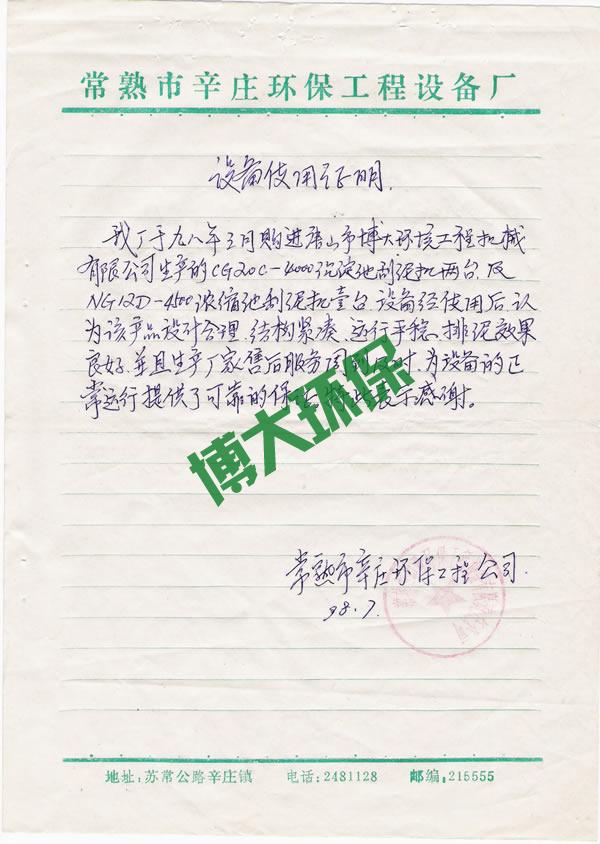 常熟市辛庄环保工程设备厂
设备使用证明
我厂于九八年三月购进唐山市博大环境工程机械
有限公司生产的CG20C-4000沉淀池刮泥机两台,及
NG12D-4500浓缩池刮泥机壹台.设备经使用后,认
为该产品设计合理、结构紧凑、运行平稳、排泥效果
良好,并且生产厂家售后服务周到及时,为设备的正
常运行提供了可靠的保证,特此表示感谢。
博大环保
常熟市辛庄环保工程公司.
98.7.
地址:苏常公路辛庄镇 电话:2481128 邮编:215555